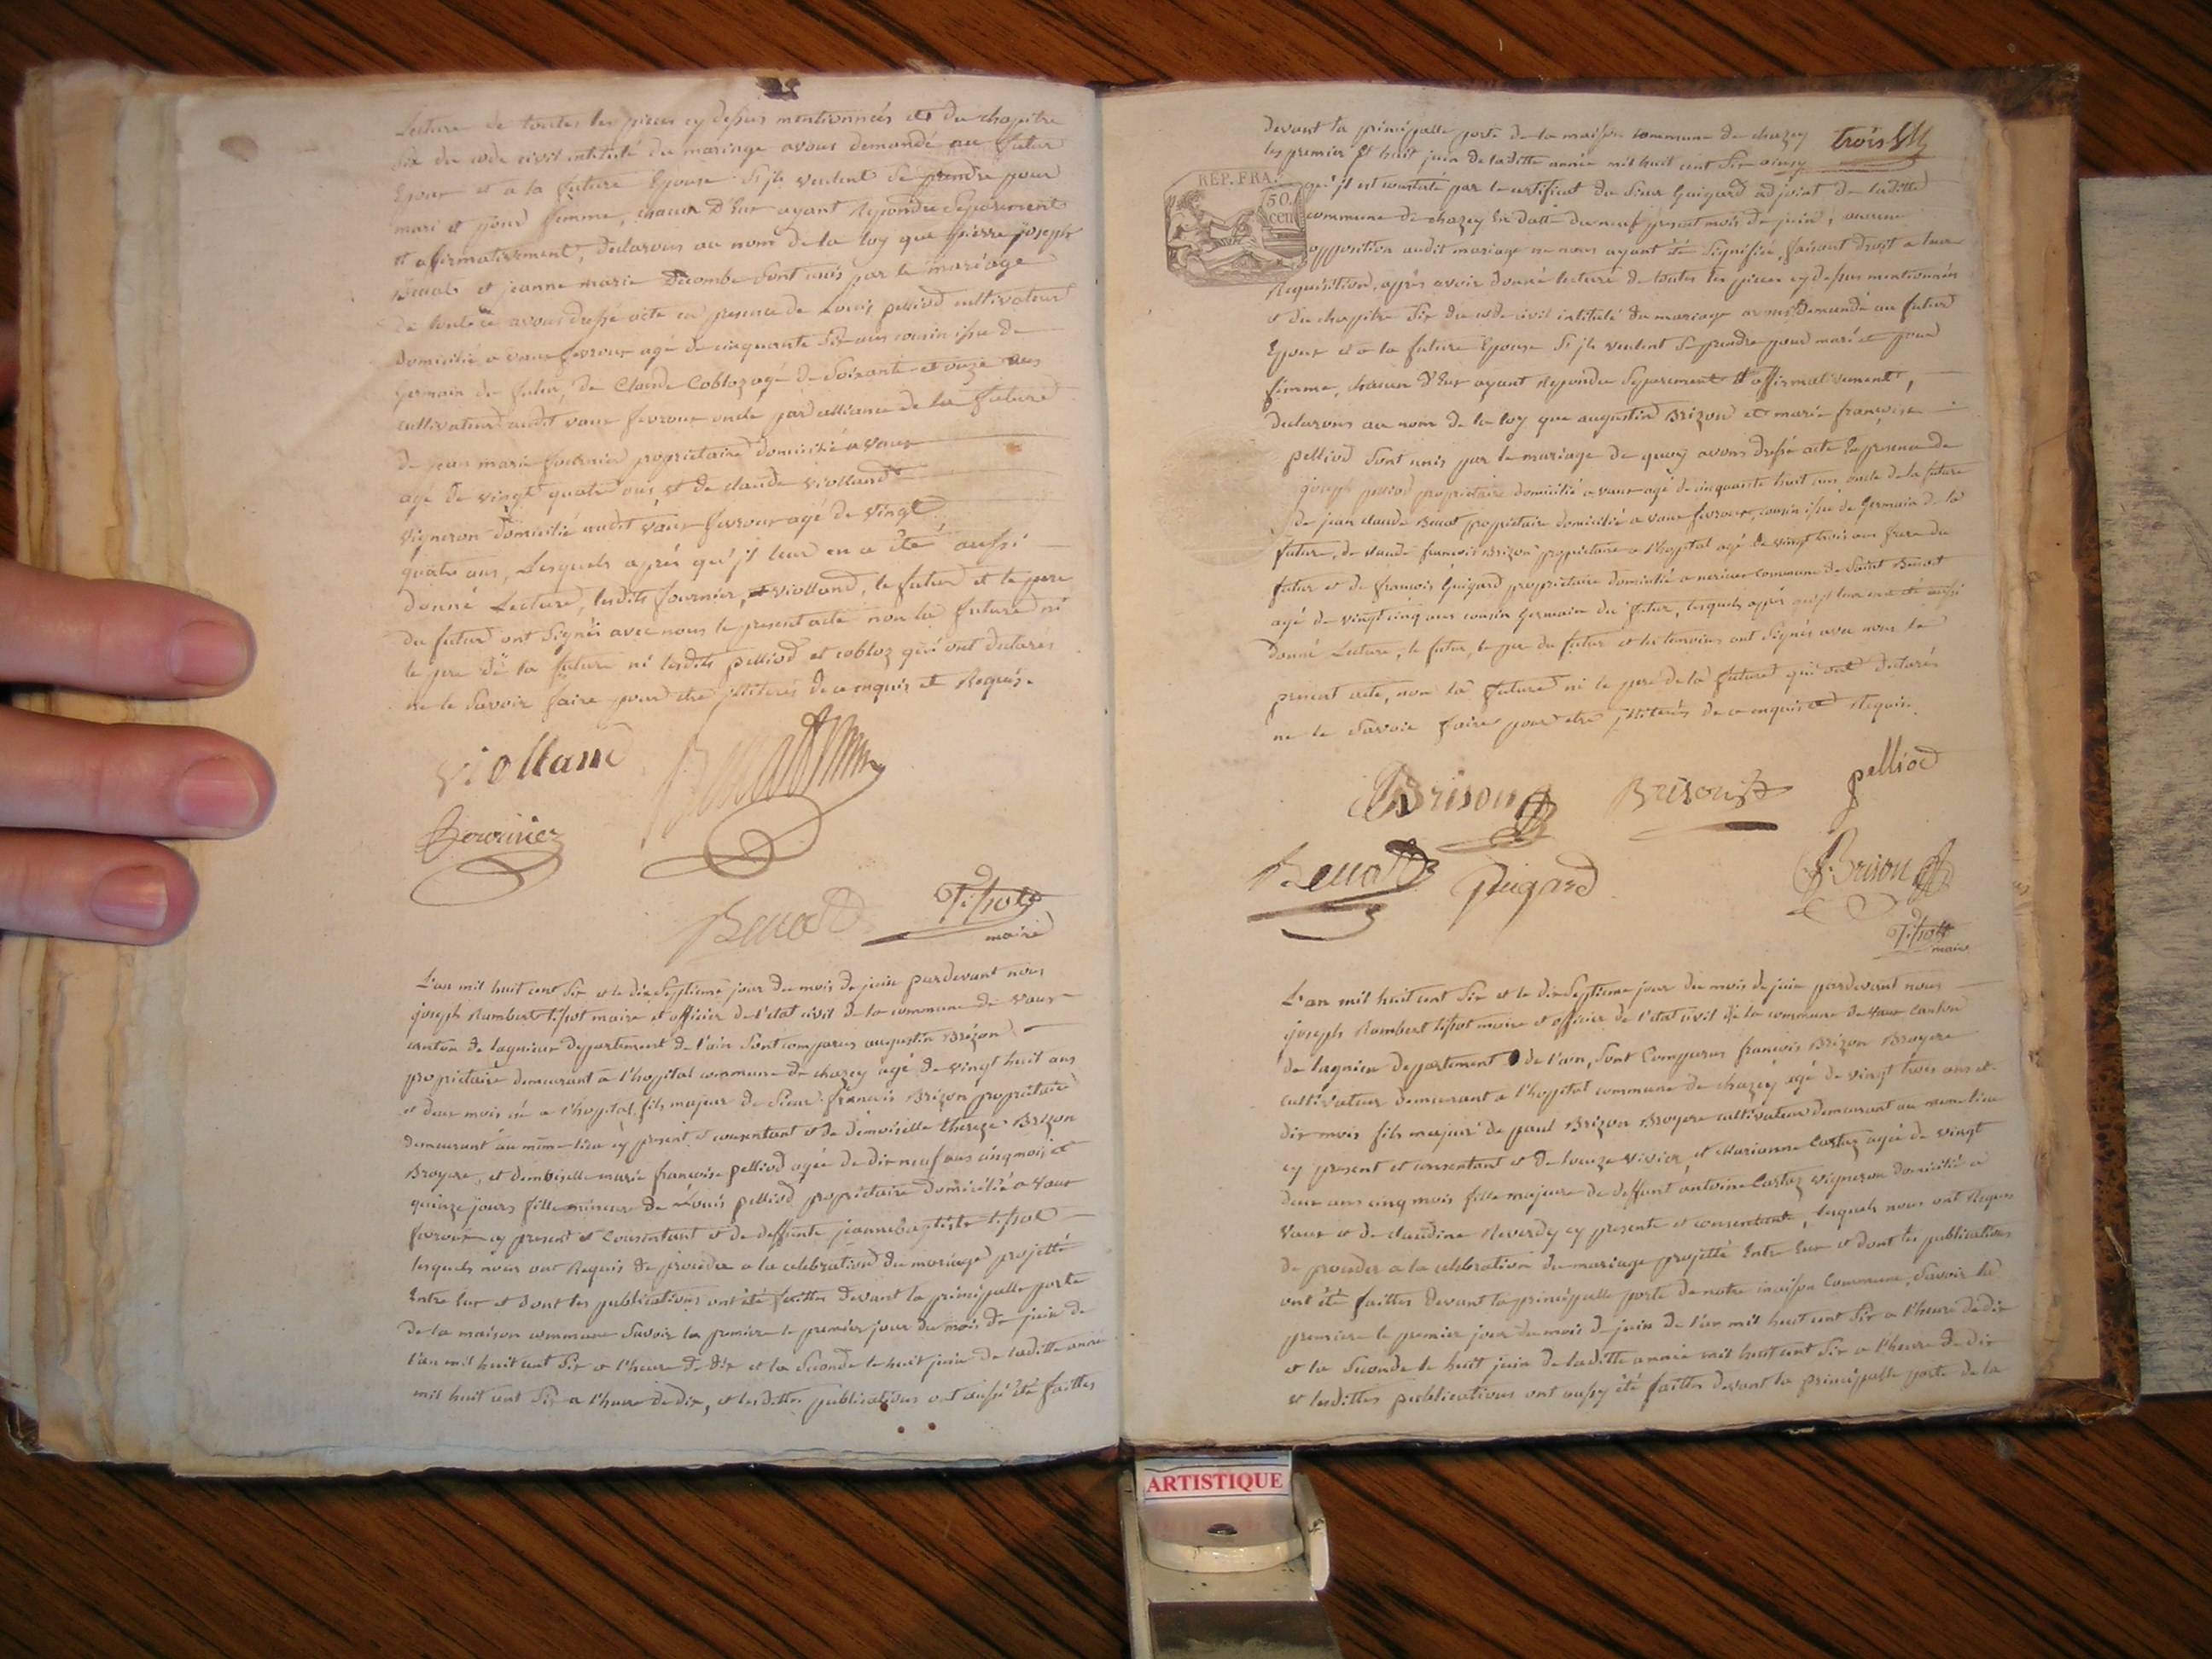 Lecture de toutes les pieces cy dessus mentionnées et du chapitre
Six du code civil intitulé du mariage avons demandé au futur
Epoux et a la future Epouse S'jls veulent Se prendre pour
mari et pour femme, chacun D'Eux ayant Repondu Séparement
et afirmativement, declarons au nom de la loy que pierre joseph
et jeanne marie Decombe Sont unis par le mariage
de tout ce avons dressé acte en presence de Louis pelliod cultivateur
domicilié a vaux fevroux agé de cinquante Six ans cousin issu de
Germain du futur, de Claude Cobloz agé de Soixante et onze ans
cultivateur audit vaux fevroux oncle par alliance de la future
de jean marie fournier proprietaire domicilié a vaux
agé de vingt quatre ans, et de claude violland
vigneron domicilié audit vaux fevroux agé de vingt
quatre ans, Lesquels après qu'jl leur en a été aussi
donné Lecture, lesdits fournier, violland, le futur et le pere
du futur ont Signés avec nous le present acte non la future ni
le pere de la future ni lesdits pelliod et cobloz qui ont declarés
ne le Savoir faire pour etre jlliterés de ce enquis et Requis.
violland

maire
L'an mil huit cent Six et le dix Septieme jour du mois de juin pardevant nous
joseph Rambert tissot maire et officier de l'etat civil de la commune de vaux
canton de lagnieu departement de l'ain Sont comparus augustin Brizon
propriétaire demeurant a l'hopital commune de chazey agé de vingt huit ans
et deux mois né a l'hopital, fils majeur de Sieur françois Brizon propriétaire
demeurant au même lieu cy present et consentant et de demoiselle thereze Brizon
Broyere, et demoiselle marie françoise pelliod agée de dix neuf ans cinq mois et
quinze jours fille mineure de Louis pelliod propriétaire domicilié a vaux
fevroux cy present et Consentant et de deffunte jeanne baptiste tissot
lesquels nous ont Requis de proceder a la celebration du mariage projetté
Entre Eux et dont les publications ont été faittes devant la principalle porte
de la maison commune Savoir la premiere le premier jour du mois de juin de
l'an mil huit cent Six a l'heure de dix et la Seconde le huit juin de laditte année
mil huit cent Six a l'heure de dix, et lesdittes publications ont aussi été faittes
devant la principalle porte de la maison commune de chazey
les premier et huit juin de laditte année mil huit cent Six ainsy
trois
REP. FRA.
50 cen
qu'jl est constaté par le certificat du Sieur Guigard adjoint de laditte
commune de chazey En datte du neuf present mois de juin, aucune
opposition audit mariage ne nous ayant été Signifiée, faisant droit a leur
Requisition, après avoir donné lecture de toutes les pieces cy dessus mentionnées
et du chapitre Six du code civil intitulé du mariage avons Demandé au futur
Epoux et a la future Epouse Si jls veulent Se prendre pour mari et pour
femme, chacun d'Eux ayant Repondu Separement et affirmativement,
declarons au nom de la loy que augustin Brizon et marie françoise
pelliod Sont unis par le mariage de quoy avons dressé acte En presence de
joseph pelliod proprietaire domicilié a vaux agé de cinquante huit ans oncle de la future
de jean claude proprietaire domicilié a vaux fevroux, cousin issu de Germain de la
future, de claude françois Brizon proprietaire a l'hopital agé de vingt trois ans frere du
futur et de françois Guigard proprietaire domicilié a commune de Saint Benoit
agé de vingt cinq ans cousin Germain du futur, lesquels apprés qu'jl leur en a été aussi
donné Lecture, le futur, le pere du futur et les temoins ont Signés avec nous le
present acte, non la future ni le pere de la future qui ont declarés
ne le Savoir faire pour etre jlliterés de ce enquis et Requis.
Brison Brison pelliod
Guigard Brison
maire
L'an mil huit cent Six et le dix Septieme jour du mois de juin pardevant nous
joseph Rambert tissot maire et officier de l'etat civil de la commune de vaux Canton
de lagnieu departement de l'ain, Sont Comparus françois Brizon Broyere
cultivateur demeurant a l'hopital commune de chazey agé de vingt trois ans et
dix mois fils majeur de paul Brizon Broyere cultivateur demeurant au même lieu
cy present et consentant et de Louize vivier, et Marianne Cartaz agée de vingt
deux ans cinq mois fille majeure de deffunt antoine Cartaz vigneron domicilié a
vaux et de claudine Reverdy cy presente et consentante, lesquels nous ont Requis
de proceder a la celebration du mariage projetté Entre Eux et dont les publications
ont été faittes devant la principalle porte de notre maison Commune, Savoir la
premiere le premier jour du mois de juin de l'an mil huit cent Six a l'heure de dix
et la Seconde le huit juin de laditte année mil huit cent Six a l'heure de dix
et lesdittes publications ont aussy été faittes devant la principalle porte de la
ARTISTIQUE